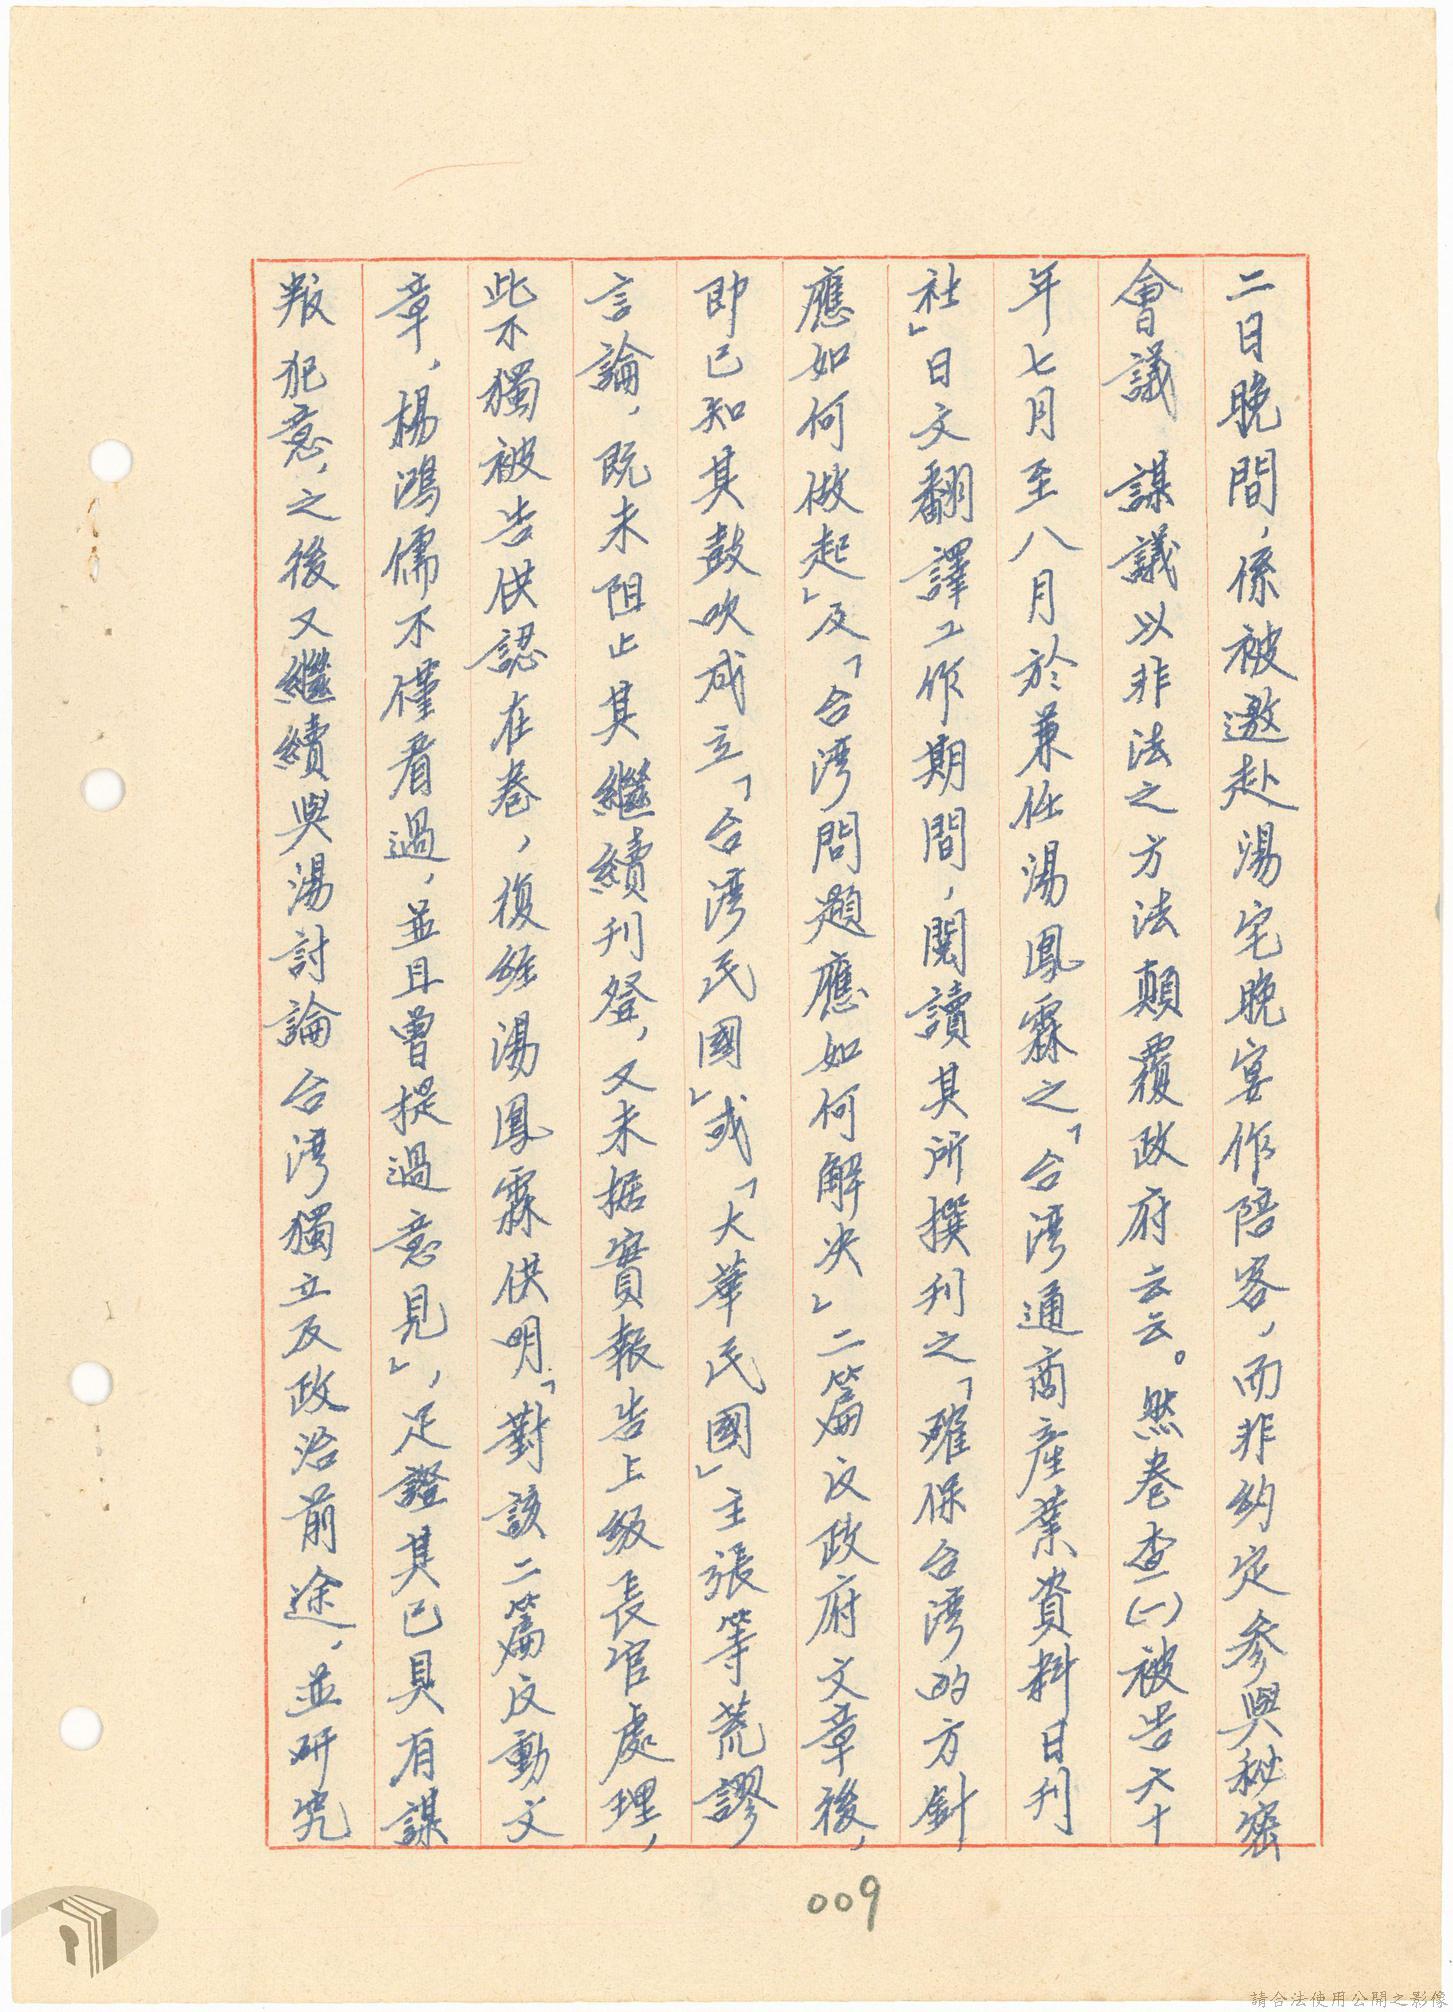 二日晚間，係被邀赴湯宅晚宴作陪客，而非約定參與秘密
會議　謀議以非法之方法顛覆政府云云。然卷查(一)被告六十
年七月至八月於兼任湯鳳霖之「台湾通商產業資料日刊
社」日文翻譯工作期間，閱讀其所撰刊之「確保台湾的方針
應如何做起」及「台湾問題應如何解決」二篇反政府文章後，
即已知其鼓吹成立「台湾民國」或「大華民國」主張等荒謬
言論，既未阻止其繼續刊登，又未据實報告上級長官處理，
此不獨被告供認在卷，復經湯鳳霖供明「對該二篇反動文
章，楊鴻儒不僅看過，並且曾提過意見」，足證其已具有謀
叛犯意，之後又繼續與湯討論台湾獨立及政治前途，並研究
009
請合法使用公開之影像